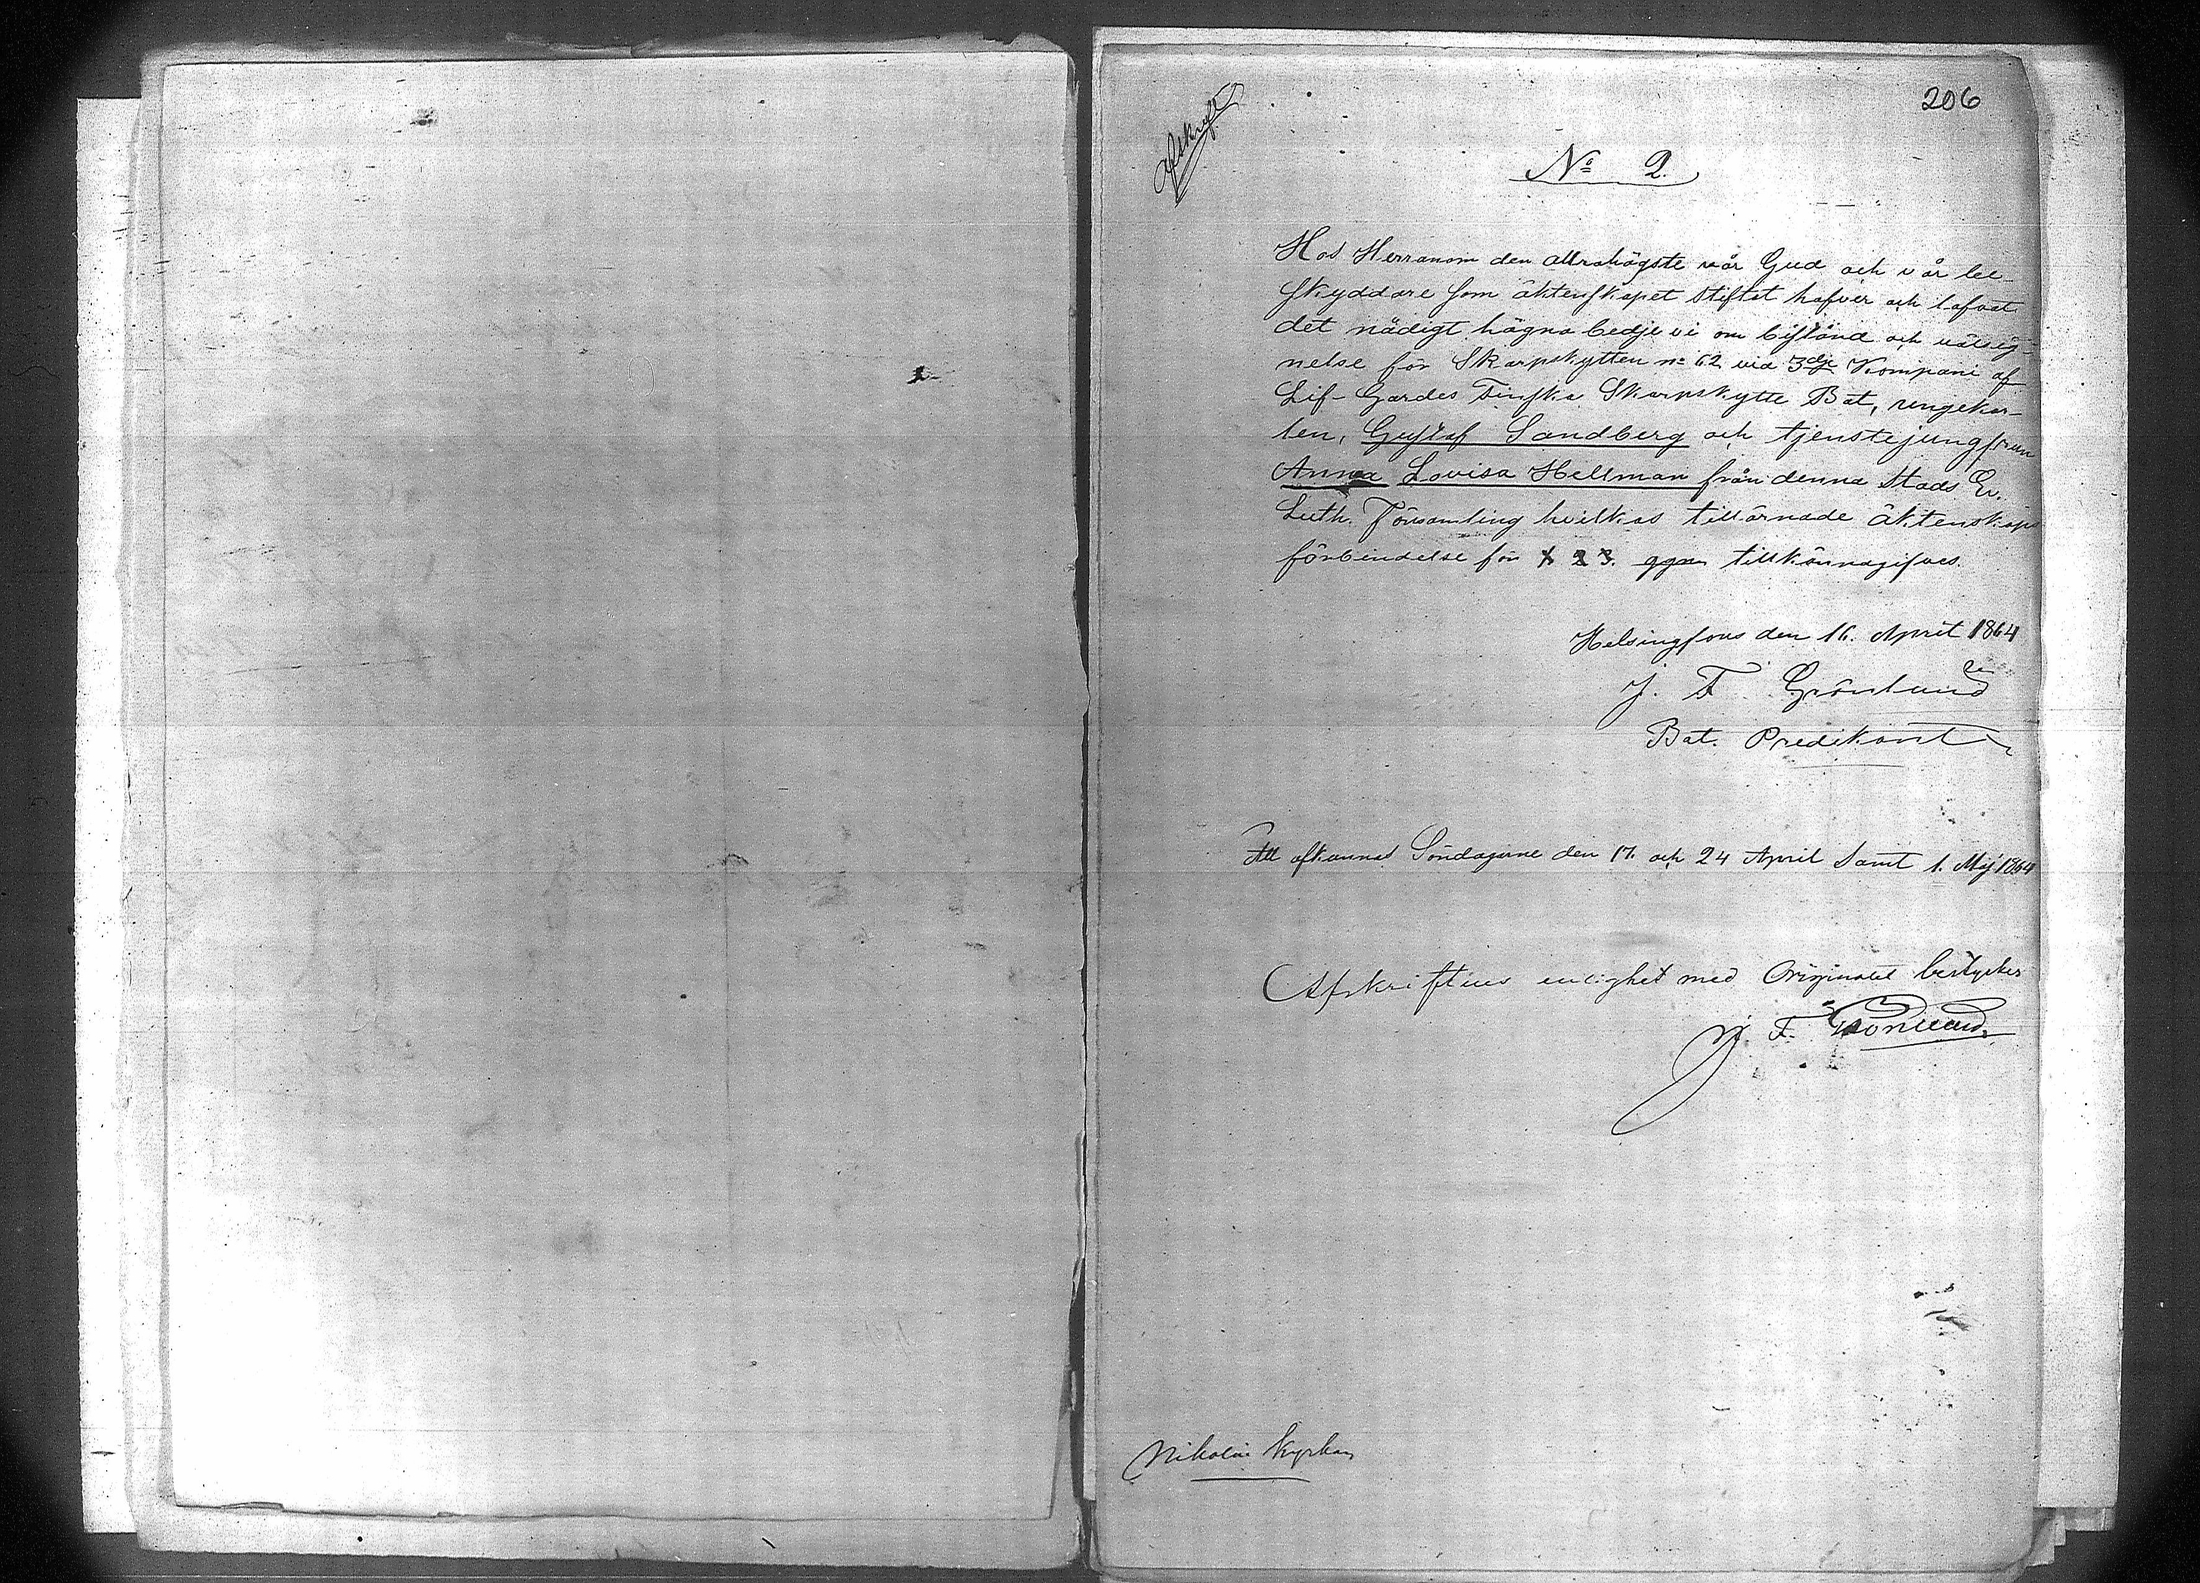 206
Afskrift
No 2.
Hos Herranom den allrahögste vår Gud och vår be-
skyddare som äktenskapet stiftat hafver och lofvat
det nådigt hägna bedje vi om bistånd och välsig-
nelse för Skarpskytten no 62 vid 3dje Kompani af
Lif-Gardes Finska Skarpskytte Bat, ungekar-
len, Gustaf Sandberg och tjenstejungfrun
Anna Lovisa Hellman från denna Stads Ev.
Luth. Församling hvilkas tillärnade äktenskaps
förbindelse för 1 2 3. ggn tillkännagifves.
Helsingfors den 16. April 1864
J. F. Grönlund
Bat. Predikant
Att afkunnas Söndagarne den 17. och 24 April samt 1. Maj 1864
Afskriftens enlighet med Originalet bestyrker
J. F. Grönlund
Nikolai Kyrkan